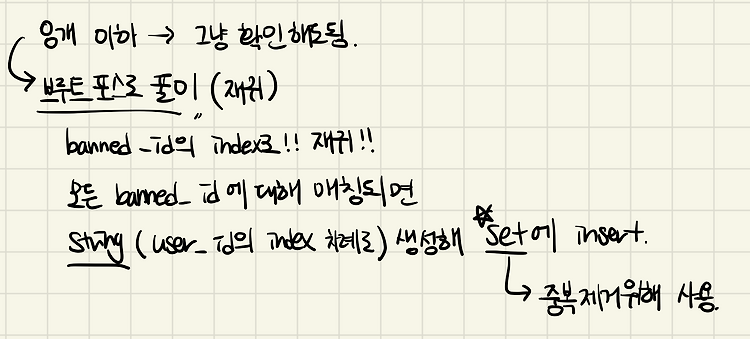 8개 이하 → 그냥 확인해도됨.
브루트포스로 풀이 (재귀)
banned_id의 index로!! 재귀!!
모든 banned_id에 대해 매칭되면
string (user_id의 index 차례로) 생성해 *set에 insert.
→ 중복제거위해 사용.